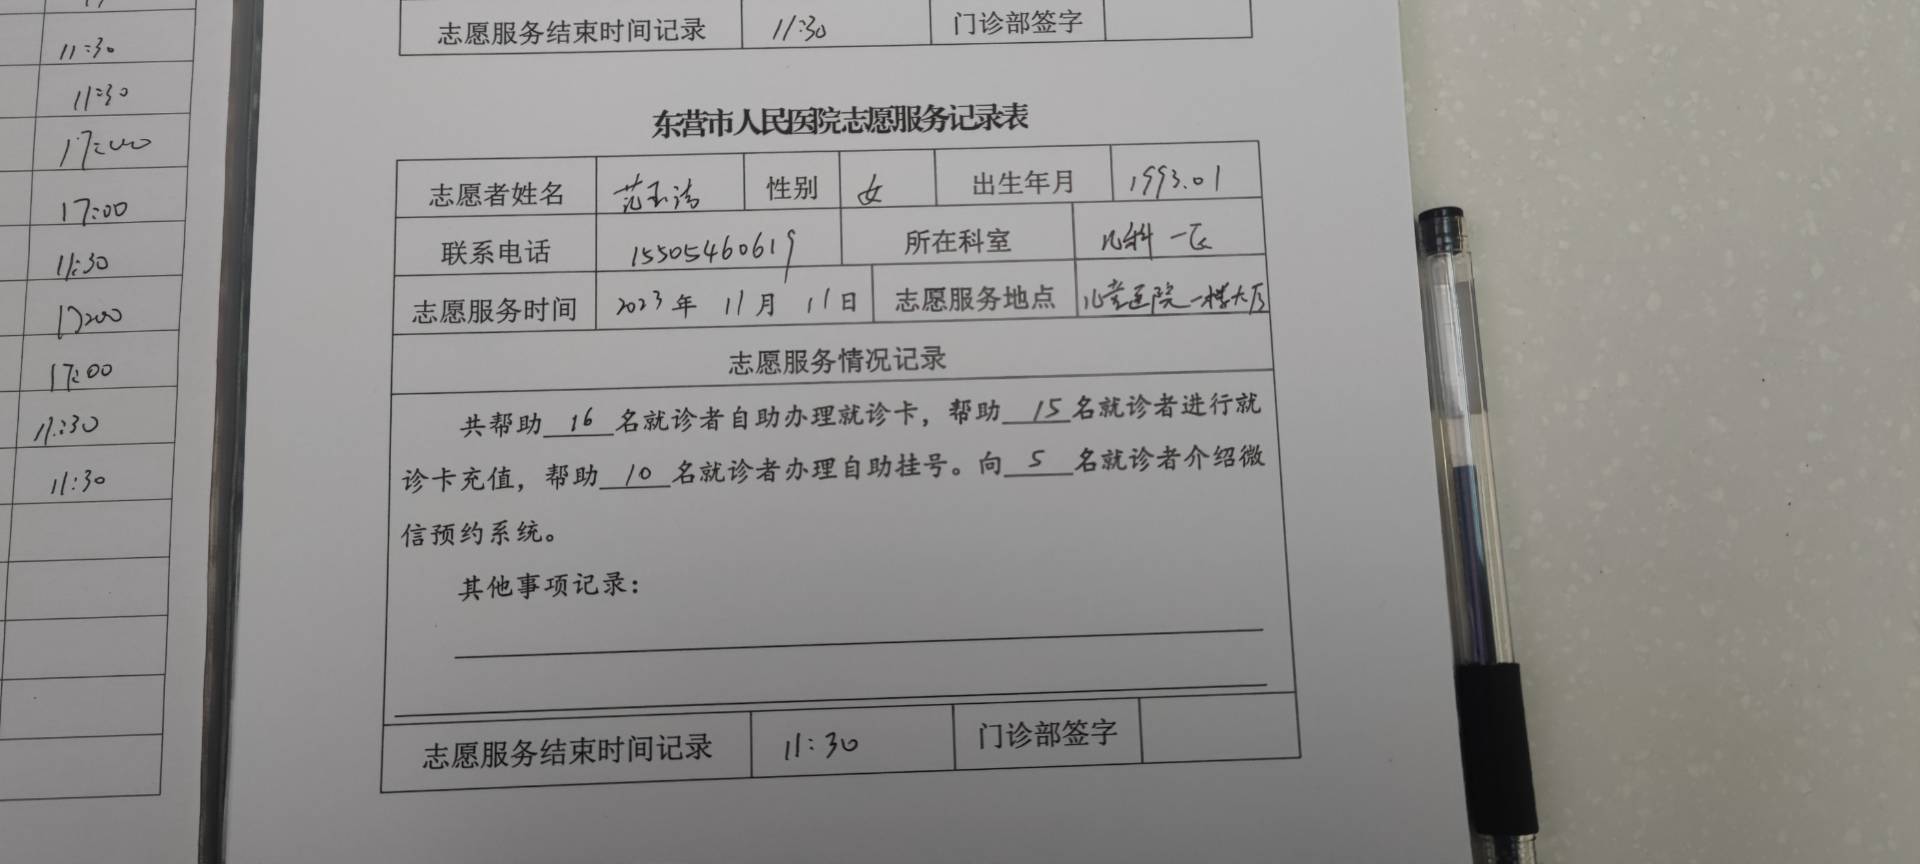 11:30
11:30
17:00
17:00
11:30
17:00
17:00
11:30
11:30
志愿服务结束时间记录 11:30 门诊部签字
东营市人民医院志愿服务记录表
志愿者姓名 范玉洁 性别 女 出生年月 1993.01
联系电话 15505460619 所在科室 儿科一区
志愿服务时间 2023年 11月 11日 志愿服务地点 儿童医院一楼大厅
志愿服务情况记录
共帮助 16 名就诊者自助办理就诊卡，帮助 15 名就诊者进行就
诊卡充值，帮助 10 名就诊者办理自助挂号。向 5 名就诊者介绍微
信预约系统。
其他事项记录：
志愿服务结束时间记录 11:30 门诊部签字